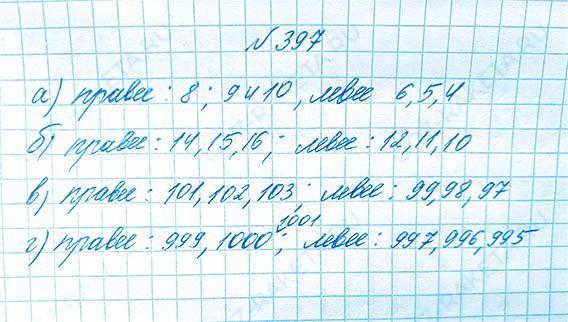 №397
а) правее: 8; 9 и 10, левее 6, 5, 4
б) правее: 14, 15, 16; левее: 12, 11, 10
в) правее: 101, 102, 103; левее: 99, 98, 97
г) правее: 999, 1000 1001; левее: 997, 996, 995